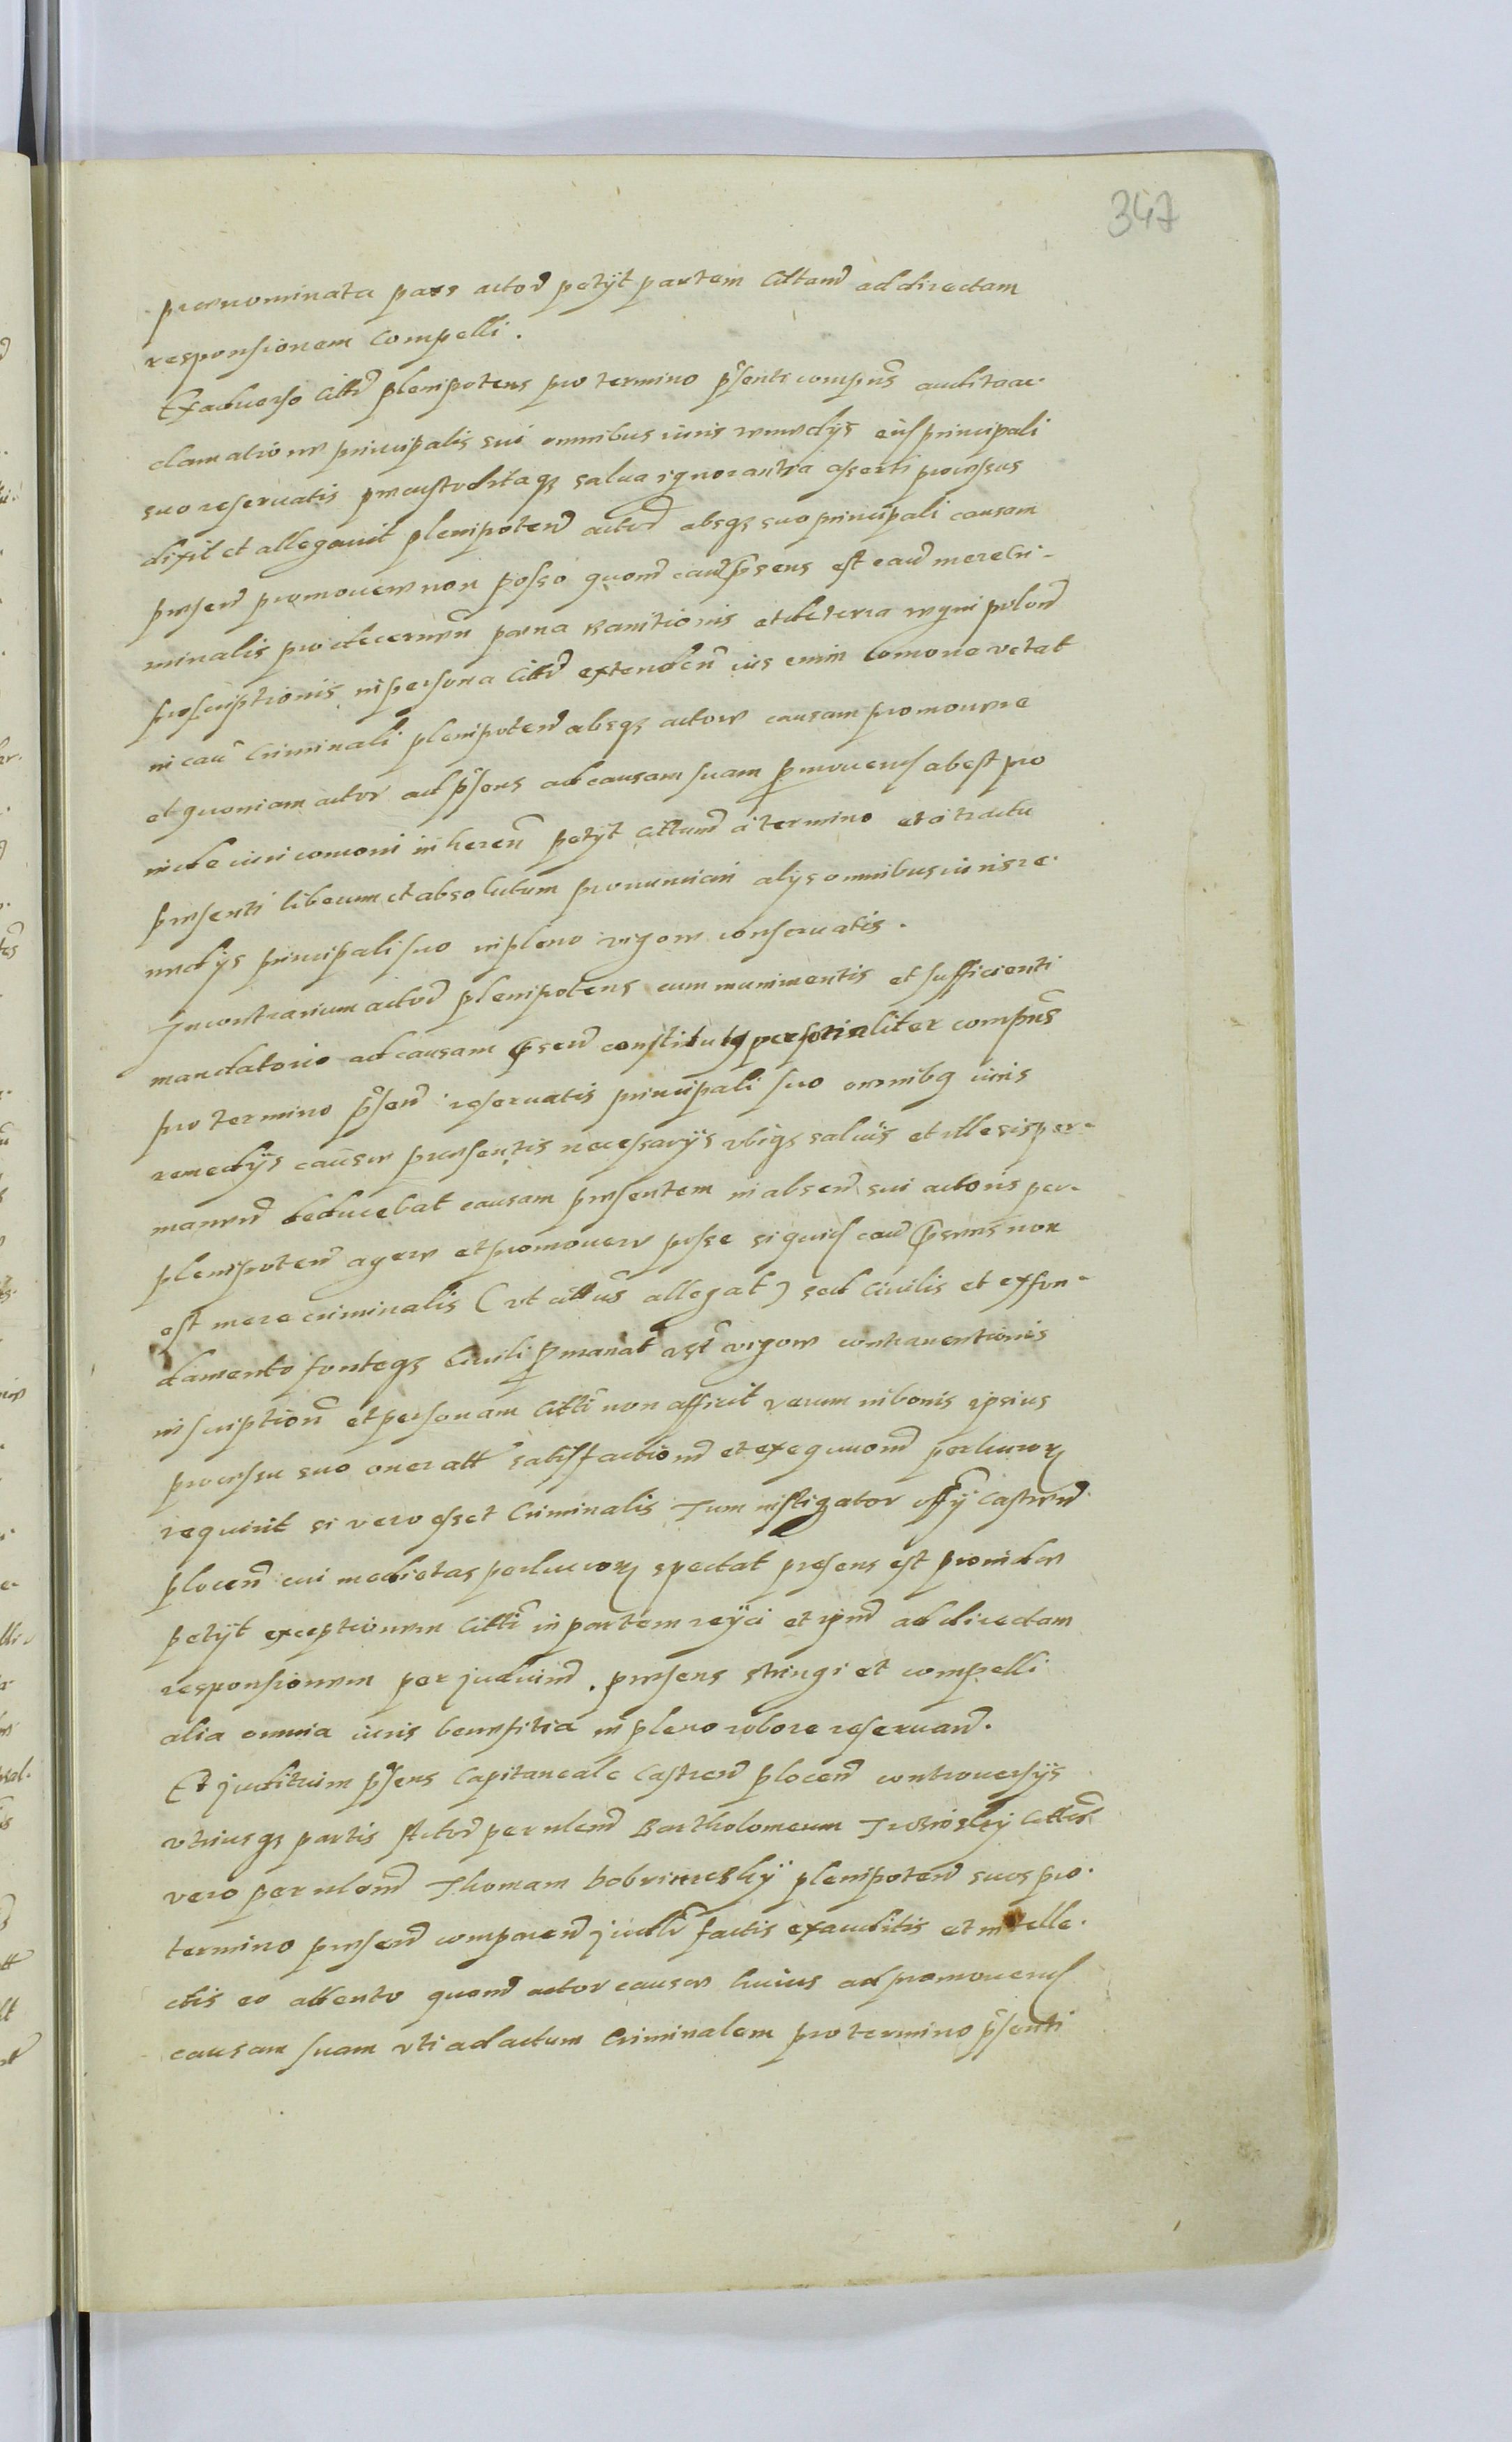 347
prænominata pars actor̃ petÿt partem Cittam̃ ad directam
responsionem Compelli.
Ex adverso Citti plenipotens pro termino p̃senti compn̄s audita ac-
clamatione principalis sui omnibus iuris remedÿs eius principali
suo reservatis precustoditaqꝫ salva ignorantia asserti processus
dixit et allegavit plenipoten̄ actor̃ absqꝫ suo principali causam
presen̄ promovere non posse quom̃ cau͂ p̃sens est cau͂ mere Cri-
minalis pro decernen̄ pœna Banitionis et de terra regni polon̄
proscriptionis in persona Citti extenden̄ ius enim Comone vetat
in cau͂ Criminali plenipoten̄ absqꝫ actore causam promovere
et quoniam actor ad p̃sens ad causam suam p̱movens abest pro
inde iuri comoni inheren̄ petÿt Cittum̃ a termino et a tractu
presenti liberum et absolutum pronunciari alÿs omnibus iuris re-
medÿs principali suo in pleno vigore conservatis.
In contrarium actor̃ plenipotens cum munimentis et sufficienti
mandatorio ad causam p̃sen̄ constitutꝰ personaliter compn̄s
pro termino p̃sen̄ reservatis principali suo omnibꝰ iuris
remedÿs causæ presentis necessarÿs ubiqꝫ salvis et illesis per-
manen̄ deducebat causam presentem in absen̄ sui actoris per
plenipoten̄ agere et promovere posse siquid cau͂ p̃sens non
est mere criminalis (ut cittus allegat) sed Civilis et ex fun-
damento fonteqꝫ Civili p̱manat est vigore contraventionis
inscription̄ et personam Citti non afficit verum in bonis ipsius
processu suo oneratt satisfaction̄ et exequution̄ perlucroꝝ
requirit si vero esset Criminalis Tum instigator offÿ Castren̄
plocen̄ cui medietas perlucroꝝ spectat presens est proinde
petÿt exceptionem Citti in partem reÿci et ipm̃ ad directam
responsionem per judicium̃. presens stringi et compelli
alia omnia iuris beneficia in pleno robore reservan̄.
Et judicium p̃sens Capitaneale Castren̄ plocen̄ controversÿs
utriusqꝫ partis Actor̃ per nlem̃ Bartholomeum
vero per nlem̃ Thomam plenipoten̄ suos pro
termino presen̄ comparen̄ judlr̃ factis exauditis et intelle-
ctis eo attento quom̃ actor causæ huius ad promovens
causam suam uti ad actum Criminalem pro termino p̃senti